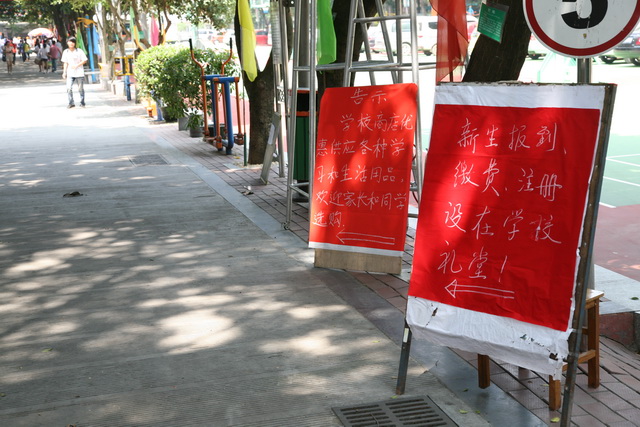 告示
学校商店优
惠供应各种学
习和生活用品,
欢迎家长和同学
选购
新生报到、
缴费、注册
设在学校
礼堂!
5